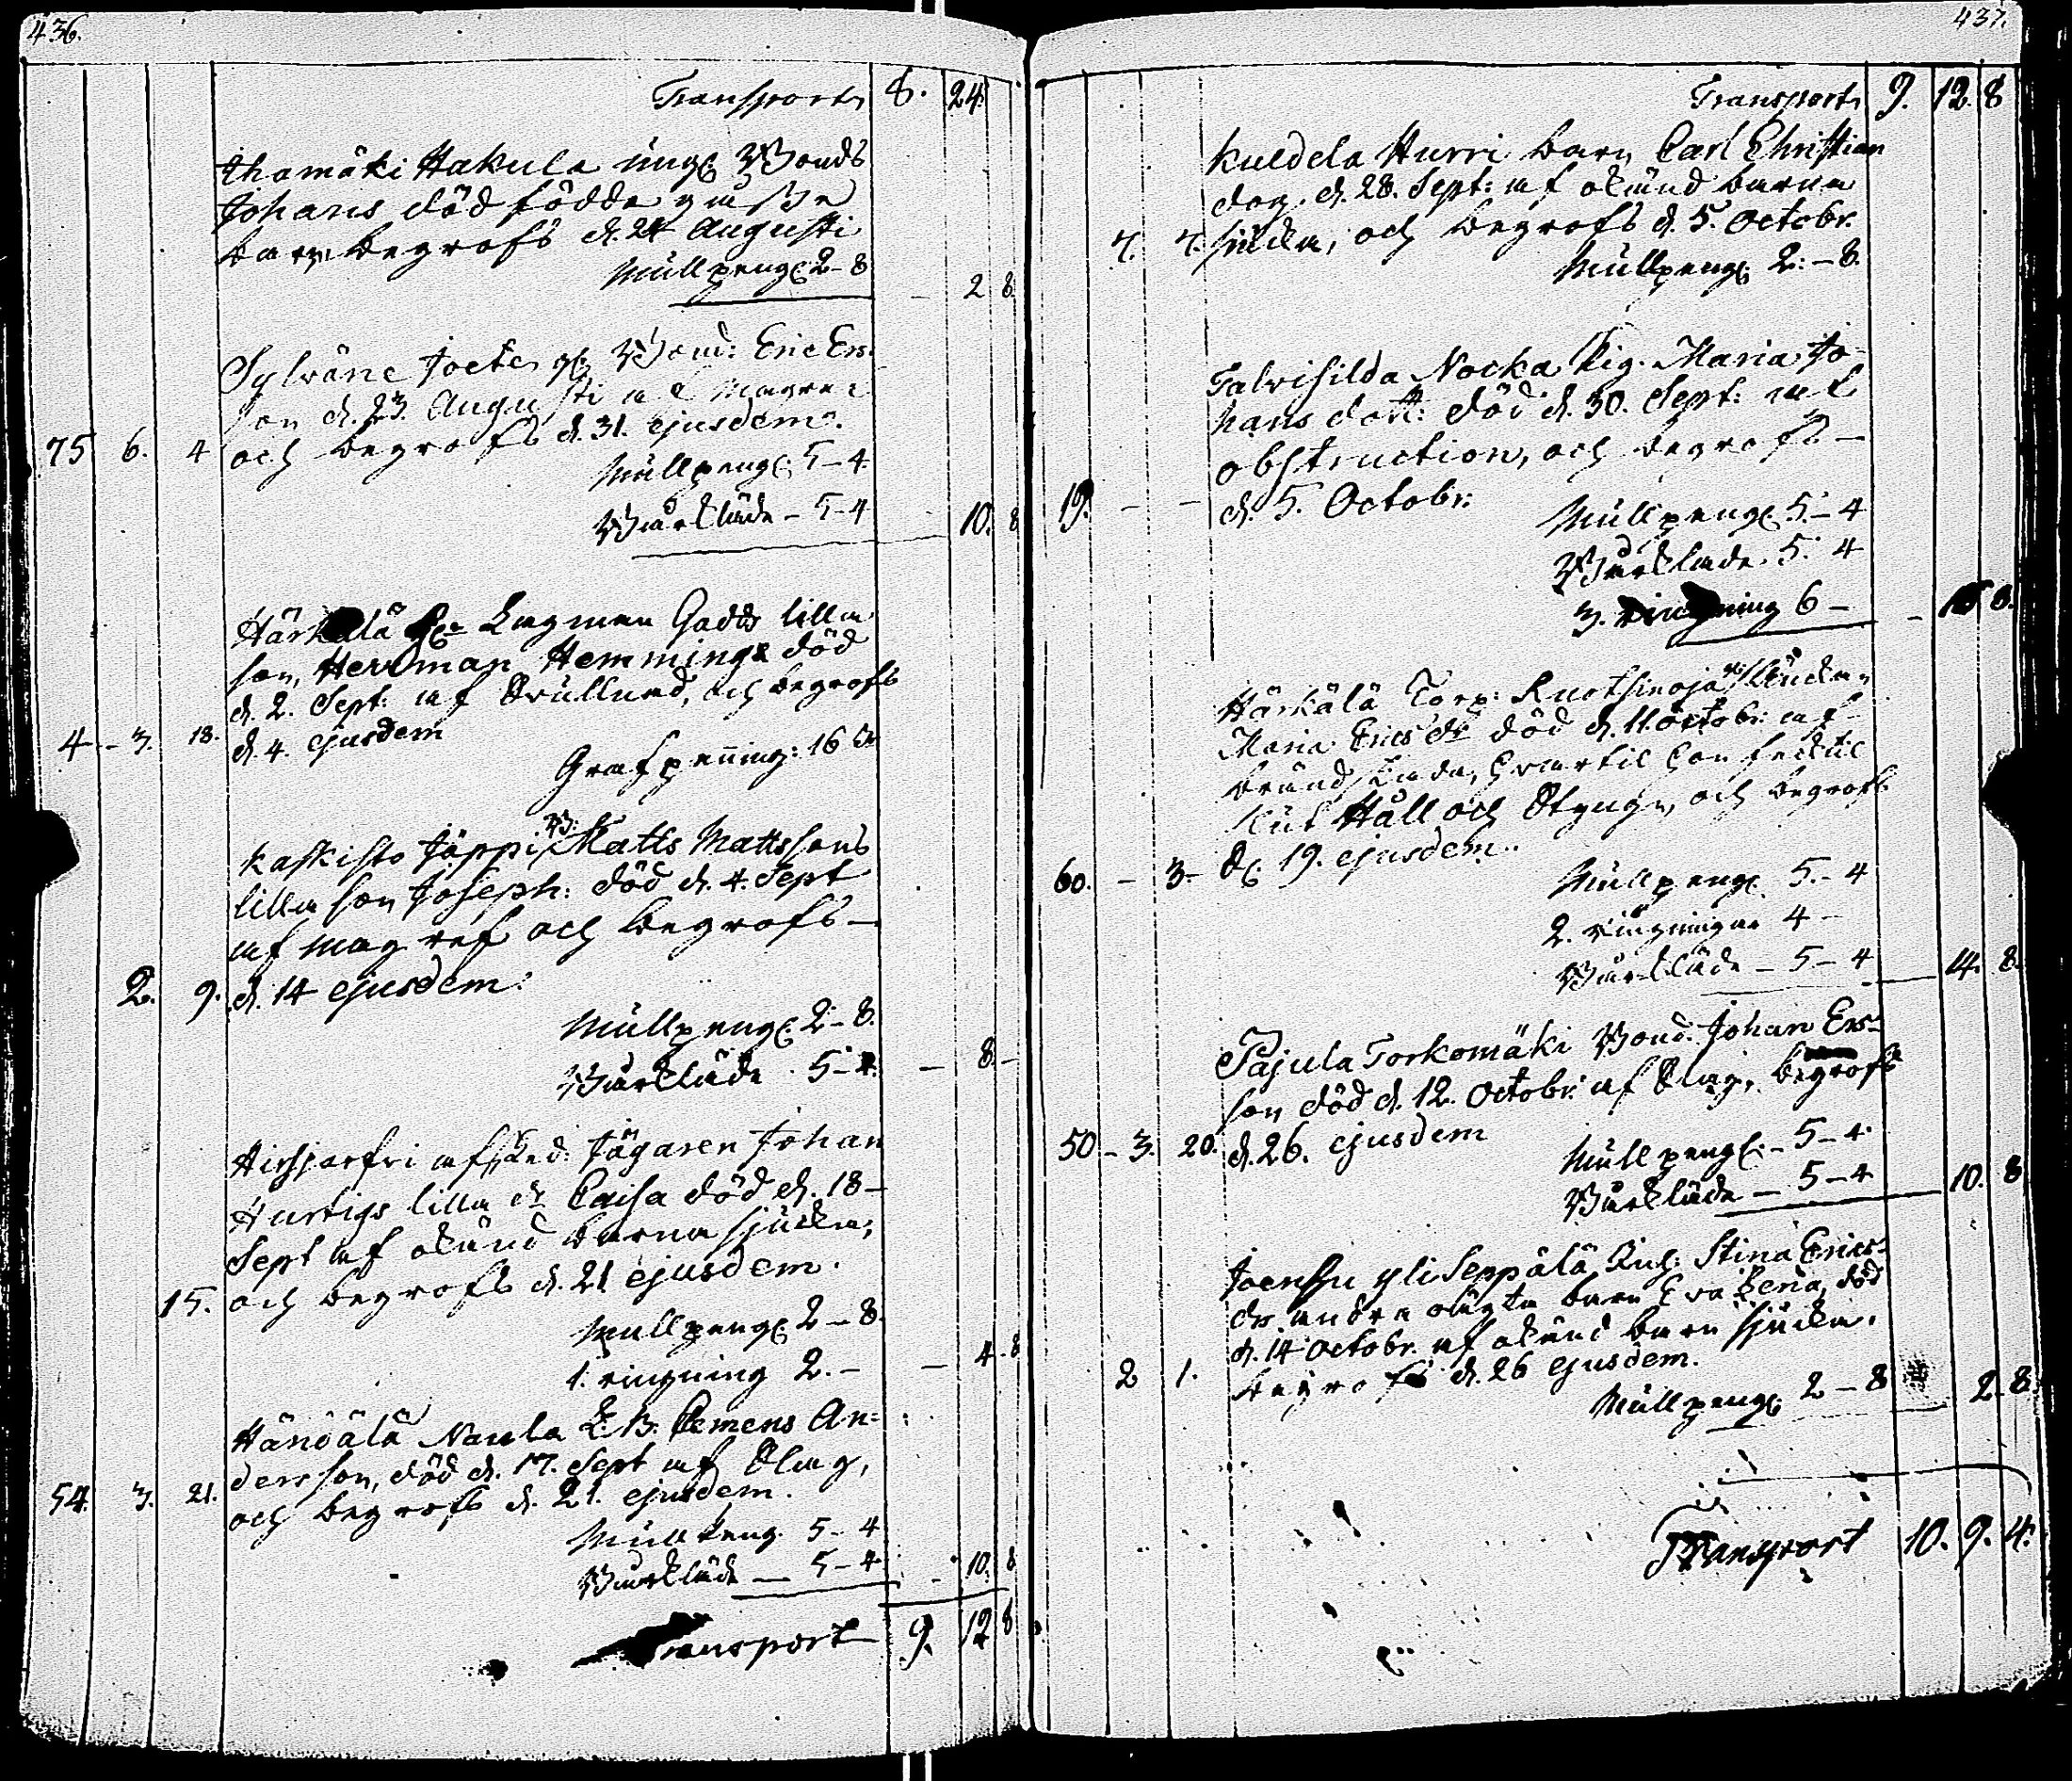 436.
Transport 8. 24.
Ihamäki Hakula ung Bonds
Johans död födde gosse
barn begrofs d. 24 Augusti
Mullpeng 2-8
- 2 8.
Sylväne Joets Bond: Eric Ers-
son d. 23. Augusti af magref
75 6. 4 och begrofs d. 31. ejusdem.
Mullpeng 5-4.
Bårkläde - 5-4 10. 8
Härkälä Lagman Gadds lilla
son, Herrman Hemming död
d. 2. Sept. af Svullnad, och begrofs
4 - 3. 18. d. 4. ejusdem
Grafpenning: 16
Kaskisto Jöppi B: Matts Mattssons
lilla son Joseph: död d. 4. Sept
af magref och begrofs -
2. 9. d. 14 ejusdem.
Mullpeng. 2-8.
Bårkläde 5-4. - 8. -
Hirsjerfvi afsked. Jägaren Johan
Hurtigs lilla dr Caisa död d. 18 -
Sept af okänd barnasjukdom,
15. och begrofs d. 21 ejusdem.
Mullpeng 2-8.
1. ringning 2. - - 4. 8
Händälä Naula B. Clemens An=
dersson, död d. 17. Sept af Slag,
54. 3. 21. och begrofs d. 21. ejusdem.
Mullpeng. 5-4
Bårkläde - 5-4 - 10. 8
Transport 9. 12 8
437.
Transport 9. 12. 8
Kuldela Hurri barn Carl Christian
dog. d. 28. Sept: af okänd barna
7. 7. sjukdom, och begrofs d. 5. Octobr.
Mullpeng. 2. - 8.
Talvisilda Nocka Pig. Maria Jo-
hans dott: död d. 30. Sept: af
obstruction, och begrofs -
19. - - d. 5. Octobr:
Mullpeng. 5. - 4
Bårkläde. 5. 4
3. ringning 6 -
Härkälä Torp: Ruotsinoja Enkan
Maria Erics dr död d. 11. Octobr: af
brändskada, hvartil hon fick til
slut Håll och Stygn, och begrofs
60. - 3- d. 19. ejusdem.
Mullpeng. 5. - 4
2. ringningar 4 -
Bårkläde - 5-4 14. 8.
Pajula Torkomäki Bond. Johan Ers-
son död d. 12. Octobr: af Slag, begrofs
50 - 3. 20. d. 26. ejusdem
Mullpeng. - 5-4.
Bårkläde - 5-4 10. 8
Joensu yli Seppälä Pig: Stina Erics-
dr andra oägta barn Eva Lena, död
d. 14 Octobr. af okänd barn sjukdom.
2 1. begrofs d. 26 ejusdem.
Mullpeng 2-8 2-8.
Transport 10. 9. 4.